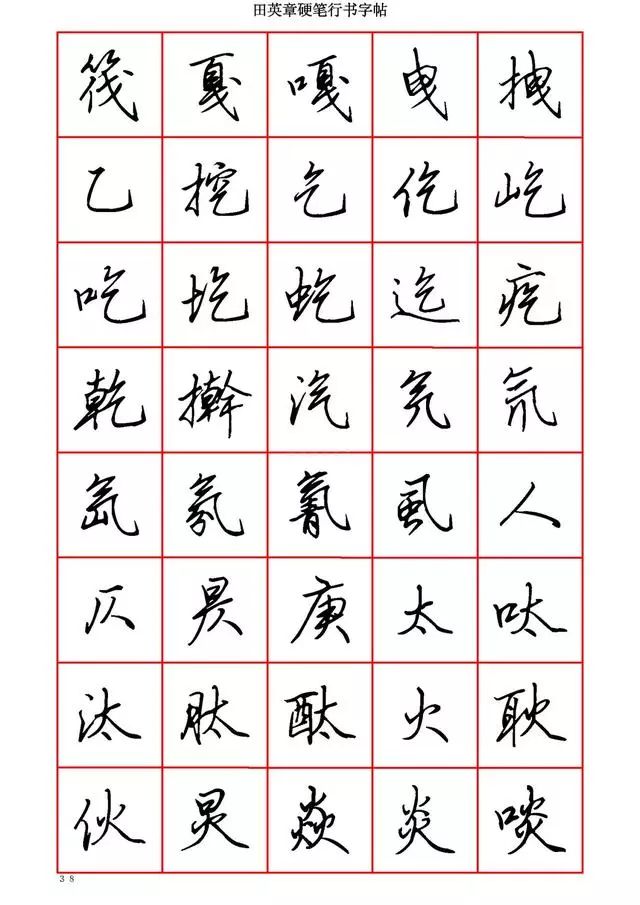 田英章硬笔行书字帖
筏 戛 嘎 曳 拽
乙 挖 乞 仡 屹
吃 圪 虼 迄 疙
乾 擀 汽 氘
氙 氛 氰 虱 人
仄 昃 庚 太 呔
汰 肽 酞 火 耿
伙 炅 焱 炎 啖
38